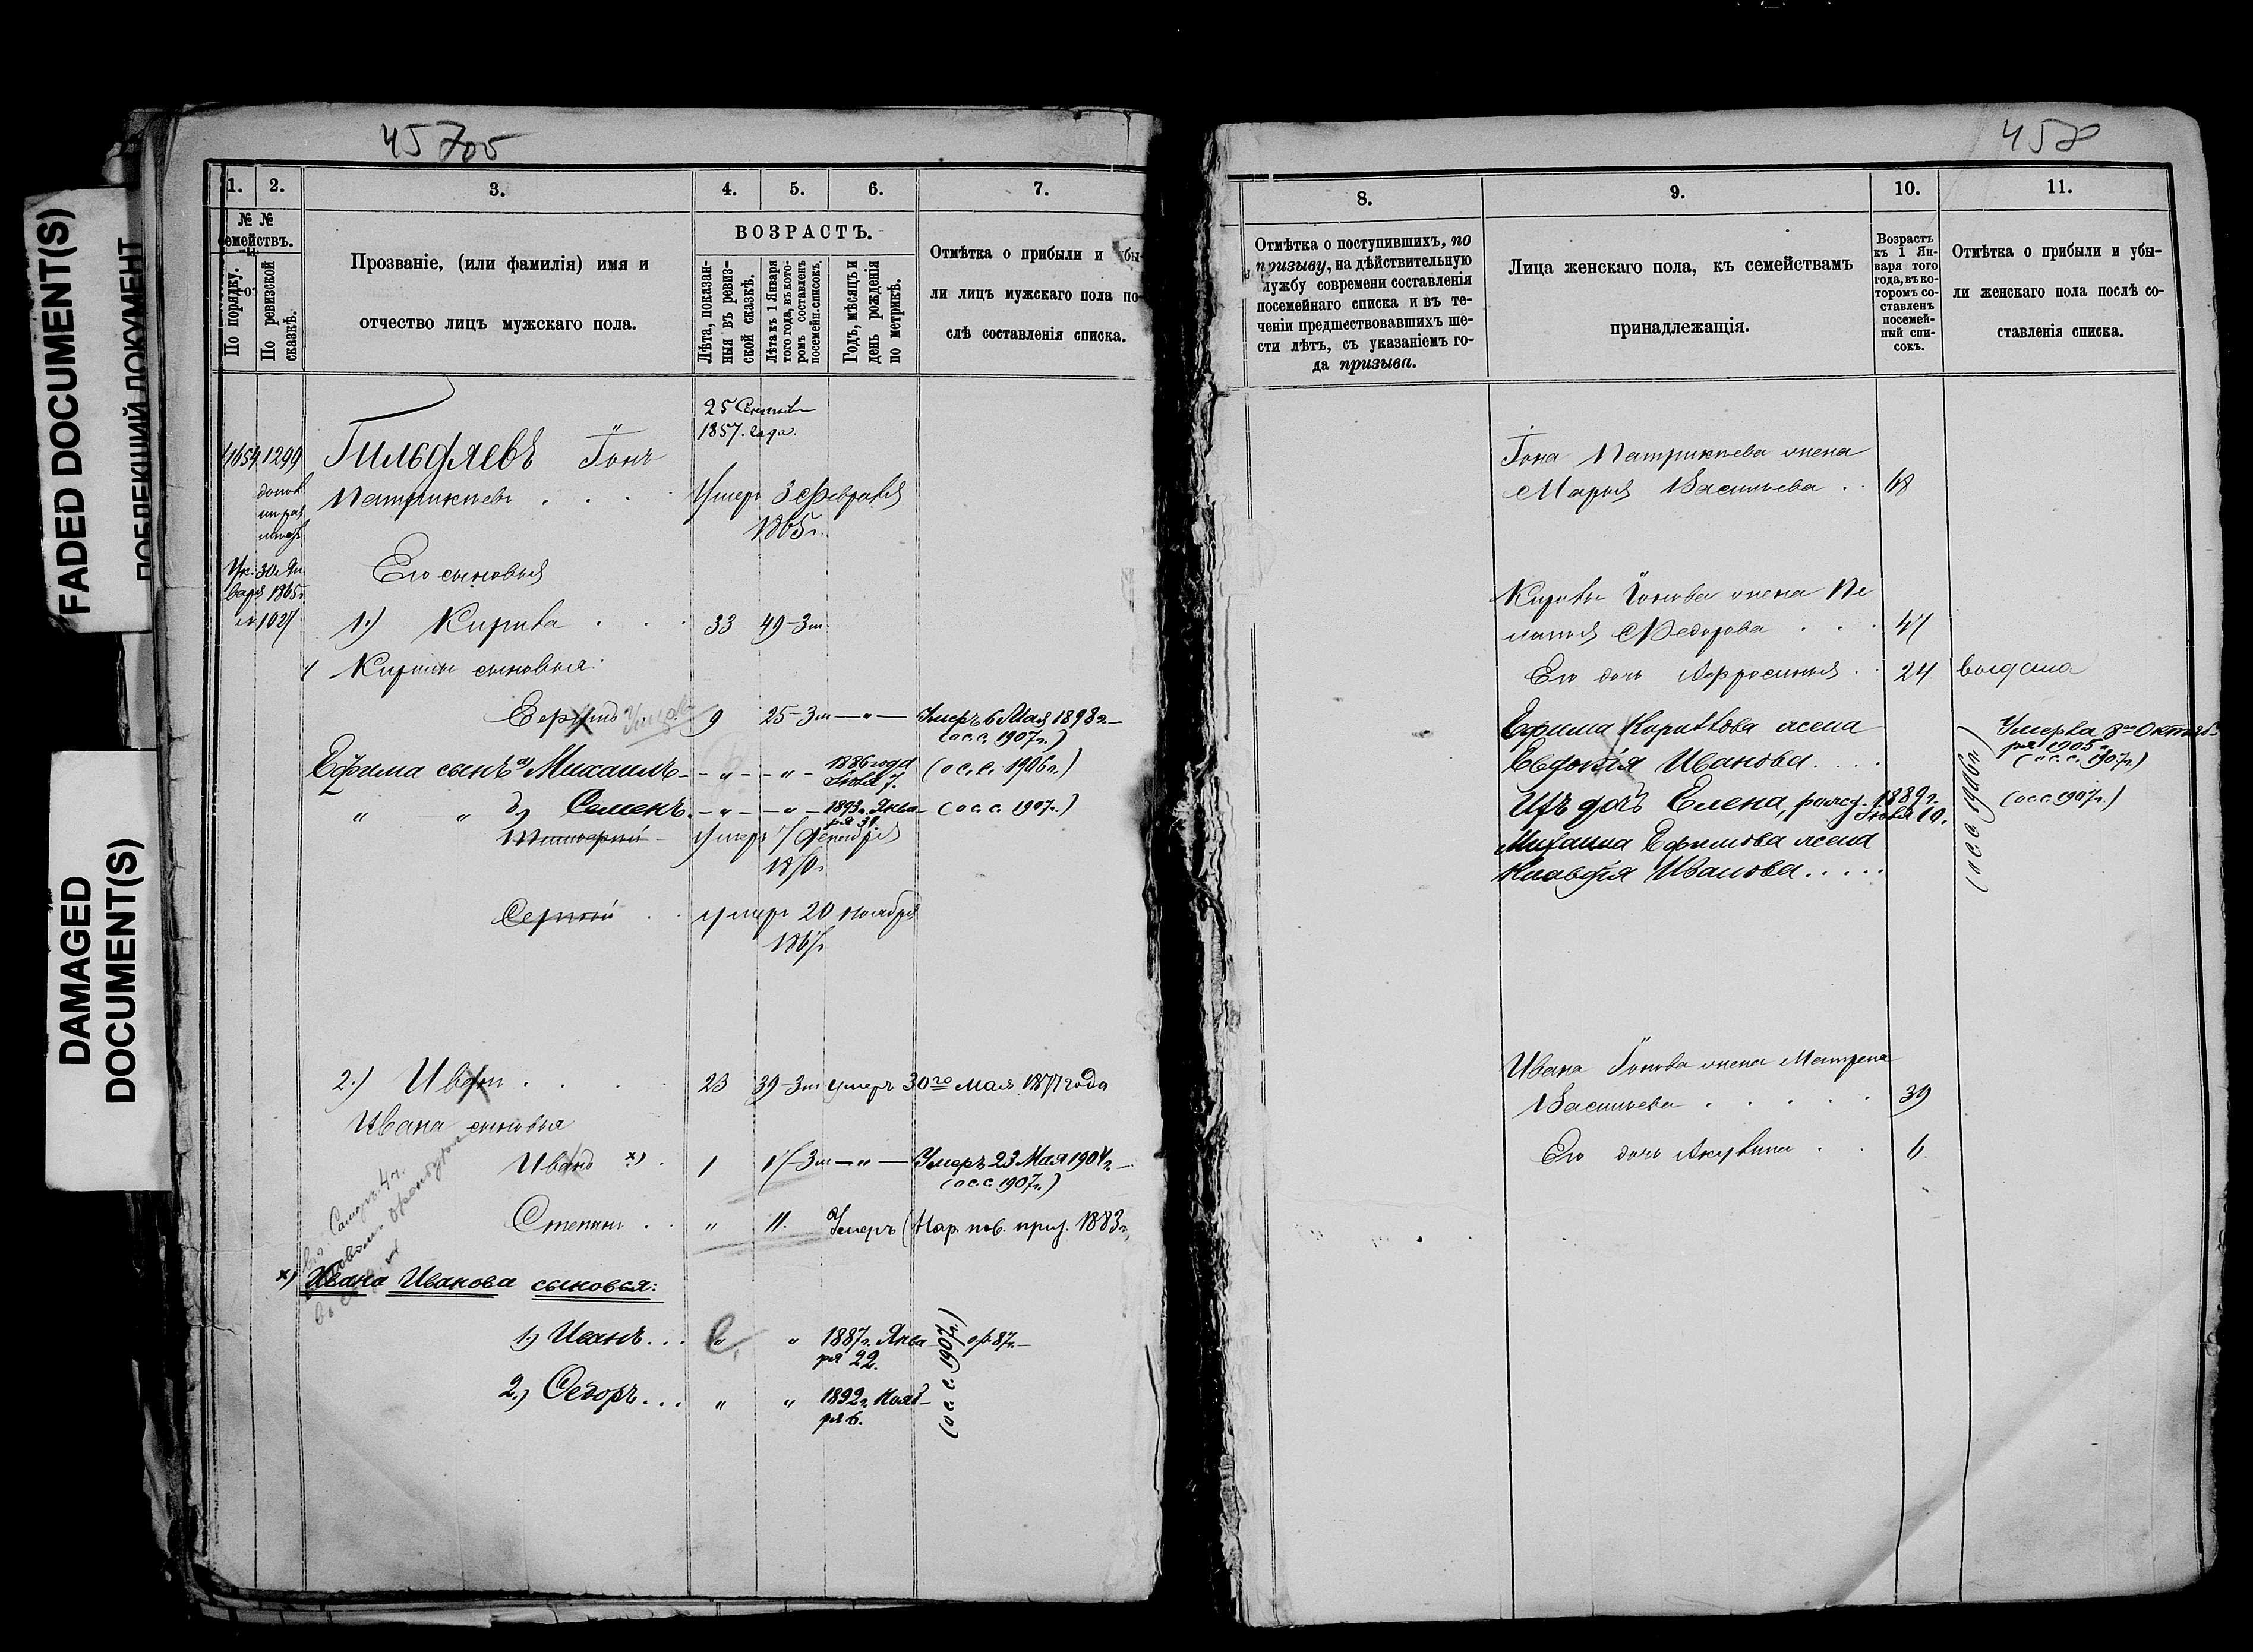 FADED DOCUMENT(S)
DAMAGED
DOCUMENT(S)
45705
1.
2.
3.
4.
5.
6.
7.
№ №
семействъ.
По порядку.
По ревизской
сказкѣ.
Прозваніе, (или фамилія) имя и
отчество лицъ мужскаго пола.
ВОЗРАСТЪ.
Лѣта, показан-
ныя въ ревиз-
ской сказкѣ.
Лѣта къ 1 Января
того года, въ кото-
ромъ составленъ
посемейн. списокъ.
Годъ, мѣсяцъ и
день рожденія
по метрикѣ.
Отмѣтка о прибыли и убы-
ли лицъ мужскаго пола по-
слѣ составленія списка.
25 Сентяб
1857. года.
4654 1299
Іонъ
Патрикѣевъ . . .
Умеръ 3 Февраля
1865г.
Ук. 30 Ян
варя 1865г
№ 1027
Его сыновья
1.) Кирила . . . 33 49-3m
Кирилы сыновья:
9 25-3m — " — Умеръ 6 Мая 1898г.—
(ос.с. 1907г.)
Ефима сынъ а) Михаилъ - " - " - 1886 года
Іюля 7. (ос.с. 1906г.)
" " б) Семенъ. - " - " - 1893г. Янва-
ря 31. (ос.с. 1907г.)
умеръ
Сергѣй . . умеръ 20 ноября
2.) Иванъ . . . . 23 39-3m умеръ 30го мая 1877 года
Ивана сыновья
Иванъ х) . 1 17-3m — " — Умеръ 23 Мая 1904г.—
(ос.с. 1907г.)
Степанъ . . " 11. Умеръ (Нар. пов. приз. 1883г.
х) Ивана Иванова сыновья:
1.) Иванъ... " " 1887г. Янва
ря 22.
2.) Ѳедоръ... " " 1892г. Нояб-
ря 6.
(ос.с. 1907г.)
458
8.
9.
10.
11.
Отмѣтка о поступившихъ, по
призыву, на дѣйствительную
службу современи составленія
посемейнаго списка и въ те-
ченіи предшествовавшихъ ше-
сти лѣтъ, съ указаніемъ го-
да призыва.
Лица женскаго пола, къ семействамъ
принадлежащія.
Возрастъ
къ 1 Ян-
варя того
года, въ ко-
торомъ со-
ставленъ
посемей-
ный спи-
сокъ.
Отмѣтка о прибыли и убы-
ли женскаго пола послѣ со-
ставленія списка.
Іона Патрикѣева жена
Марья Васильева . . 68
Кирилы Іонова жена Пе
лагея Федорова . . . 47
Его дочь Афросинья . . 24 выдана
Ефима Кирилова жена
Евдокія Иванова....
Умерла 8го Октяб-
ря 1905г.
(ос.с. 1907г.)
Ихъ дочь Елена, рожд. 1889г.
Іюля 10.
(ос.с. 1907г.)
Михаила Ефимова жена
Клавдія Иванова.....
(ос.с. 1906г.)
Ивана Іонова жена Матрена
Васильева . . . . . 39
Его дочь Акулина . . 6